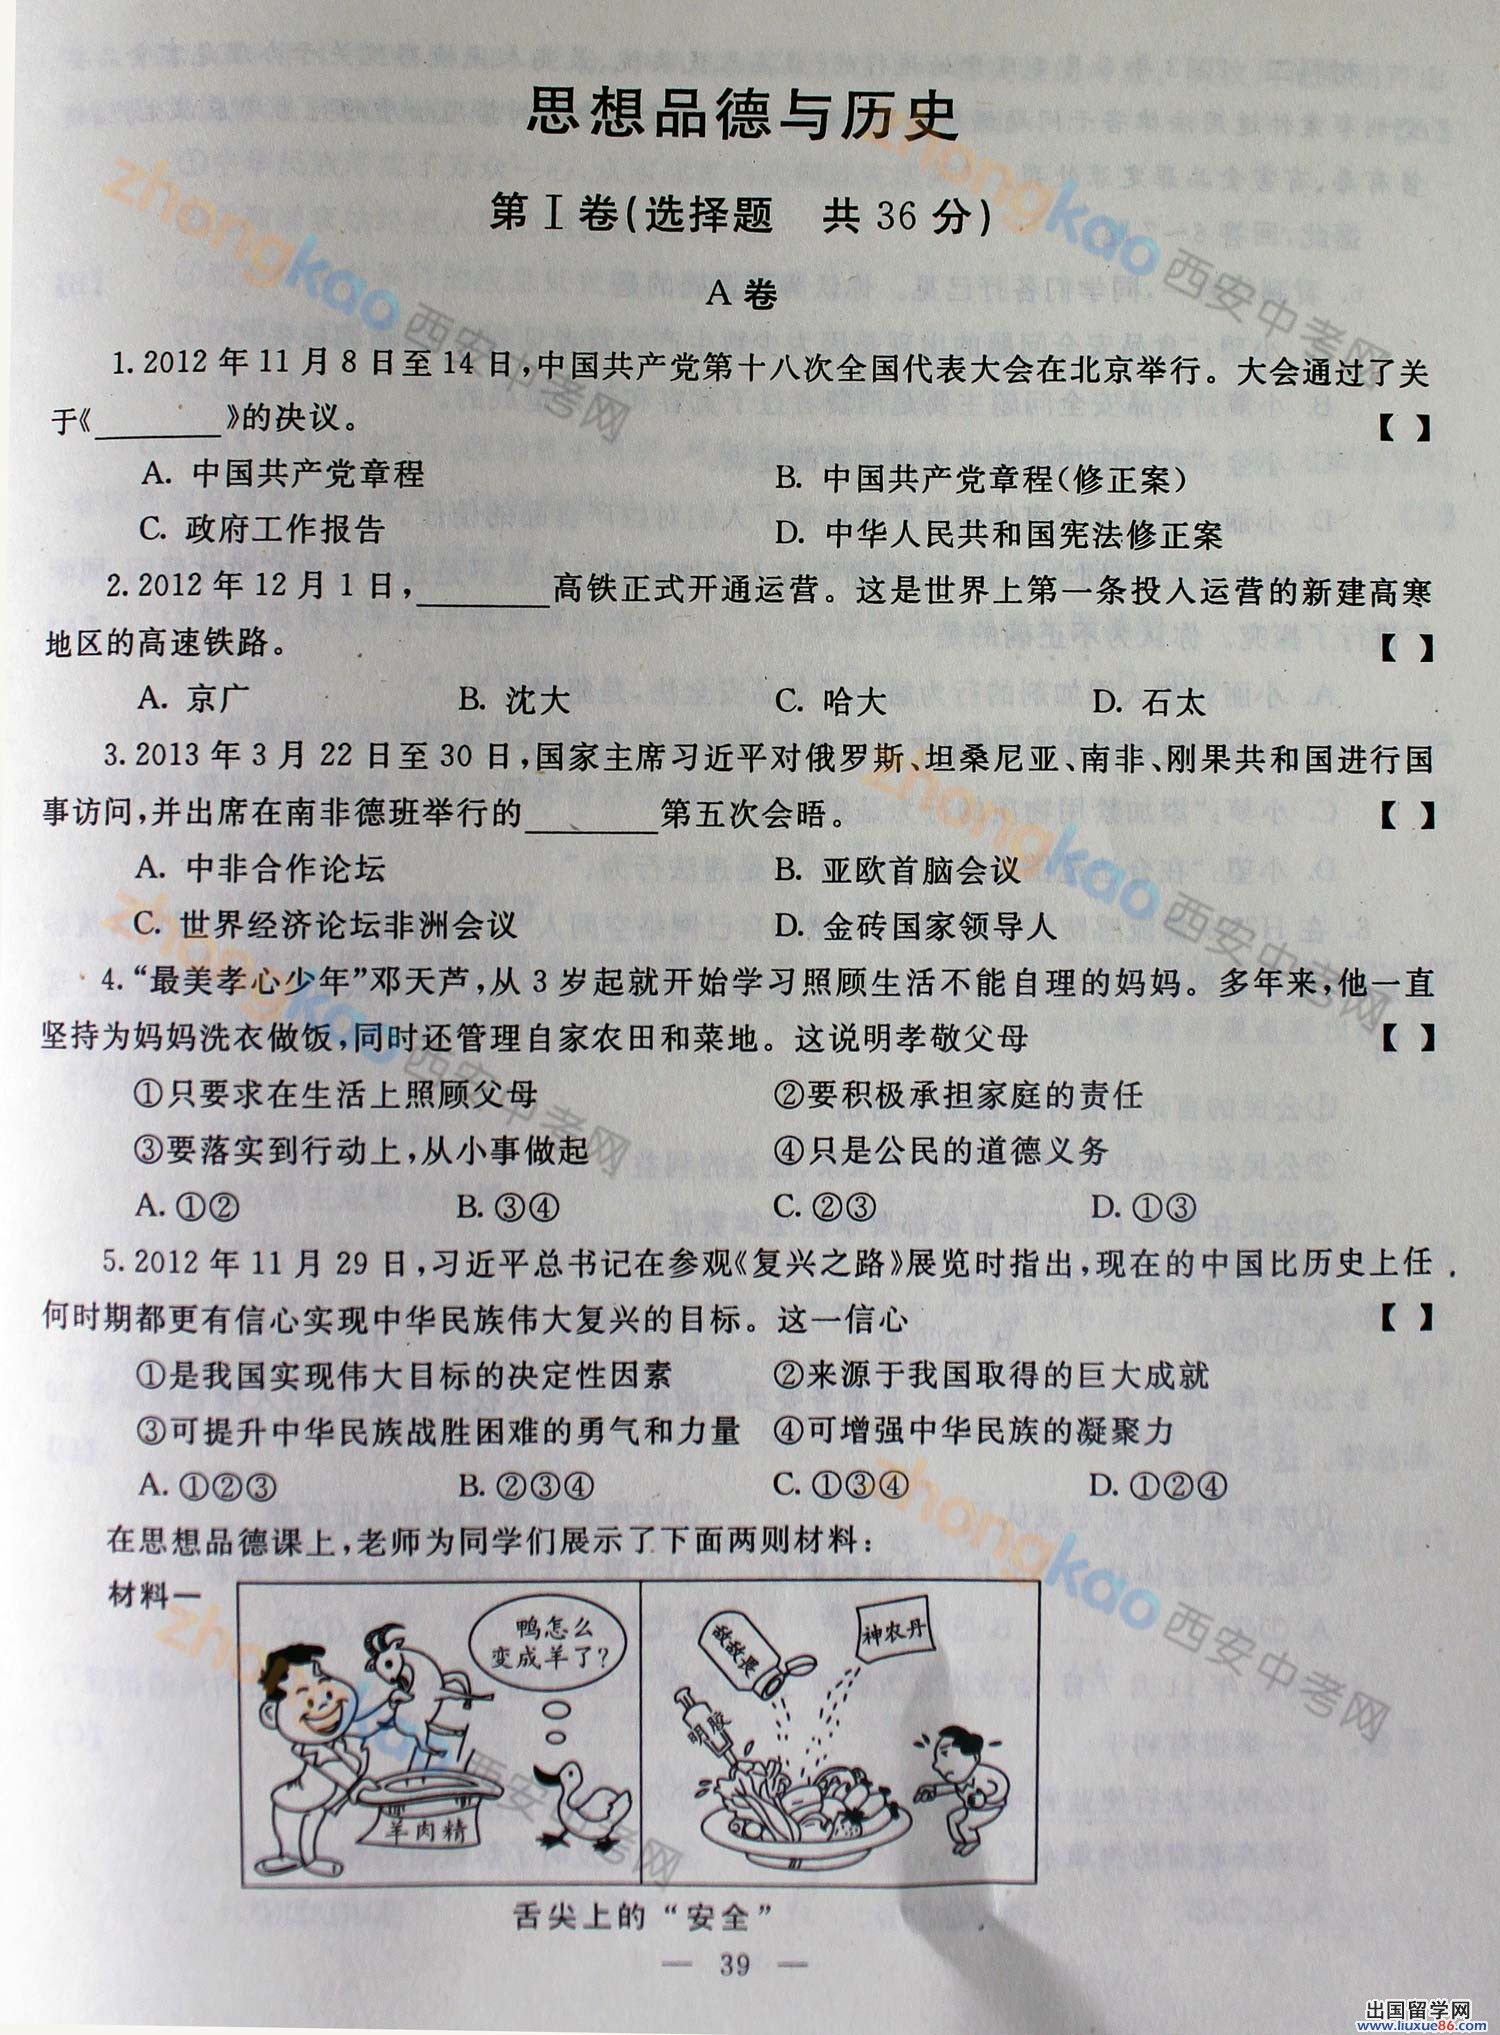 思想品德与历史
第Ⅰ卷(选择题 共36分)
A卷
1.2012年11月8日至14日,中国共产党第十八次全国代表大会在北京举行。大会通过了关
于《________》的决议。 【 】
A. 中国共产党章程 B. 中国共产党章程(修正案)
C. 政府工作报告 D. 中华人民共和国宪法修正案
2.2012年12月1日,________高铁正式开通运营。这是世界上第一条投入运营的新建高寒
地区的高速铁路。 【 】
A. 京广 B. 沈大 C. 哈大 D. 石太
3.2013年3月22日至30日,国家主席习近平对俄罗斯、坦桑尼亚、南非、刚果共和国进行国
事访问,并出席在南非德班举行的________第五次会晤。 【 】
A. 中非合作论坛 B. 亚欧首脑会议
C. 世界经济论坛非洲会议 D. 金砖国家领导人
4.“最美孝心少年”邓天芦,从3岁起就开始学习照顾生活不能自理的妈妈。多年来,他一直
坚持为妈妈洗衣做饭,同时还管理自家农田和菜地。这说明孝敬父母 【 】
①只要求在生活上照顾父母 ②要积极承担家庭的责任
③要落实到行动上,从小事做起 ④只是公民的道德义务
A. ①② B. ③④ C. ②③ D. ①③
5.2012年11月29日,习近平总书记在参观《复兴之路》展览时指出,现在的中国比历史上任
何时期都更有信心实现中华民族伟大复兴的目标。这一信心 【 】
①是我国实现伟大目标的决定性因素 ②来源于我国取得的巨大成就
③可提升中华民族战胜困难的勇气和力量 ④可增强中华民族的凝聚力
A. ①②③ B. ②③④ C. ①③④ D. ①②④
在思想品德课上,老师为同学们展示了下面两则材料:
材料一
鸭怎么
变成羊了?
羊肉精
敌敌畏
神农丹
明胶
舌尖上的“安全”
— 39 —
zhongkao西安中考网
zhongkao西安中考网
zhongkao西安中考网
zhongkao西安中考网
zhongkao西安中考网
zhongkao西安中考网
出国留学网
www.liuxue86.com